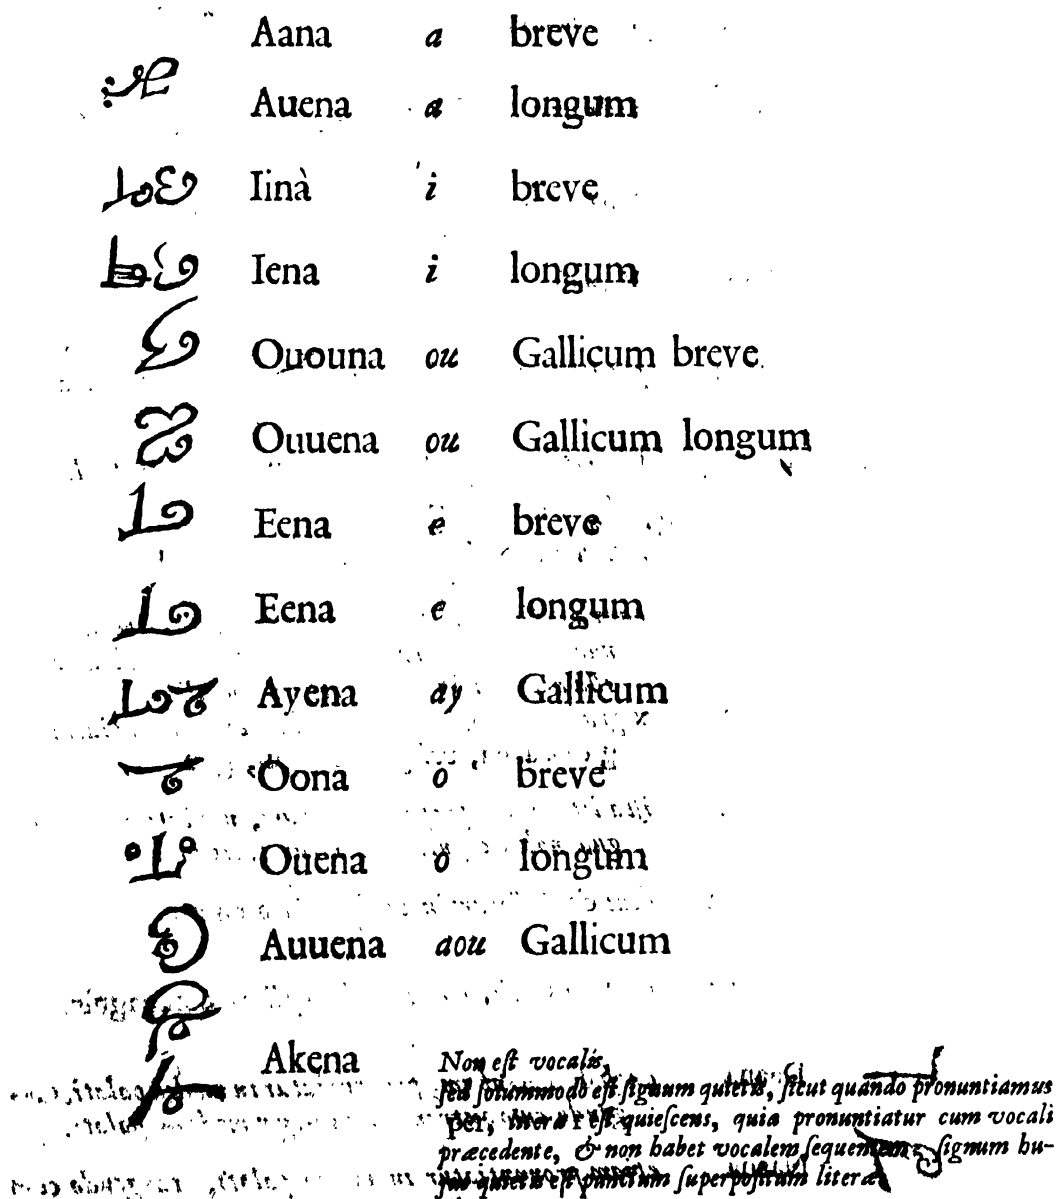 Aana a breve
Auena a longum
Iinà i breve
Iena i longum
Ououna ou Gallicum breve
Ouuena ou Gallicum longum
Eena e breve
Eena e longum
Ayena ay Gallicum
Oona o breve
Ouena o longum
Auuena aou Gallicum
Akena Non eſt vocalis,
ſed ſolummodo eſt ſignum quietis, ſicut quando pronuntiamus
per, litera r eſt quieſcens, quia pronuntiatur cum vocali
præcedente, & non habet vocalem ſequentem, ſignum hu-
jus quietis eſt punctum ſuperpoſitum literæ